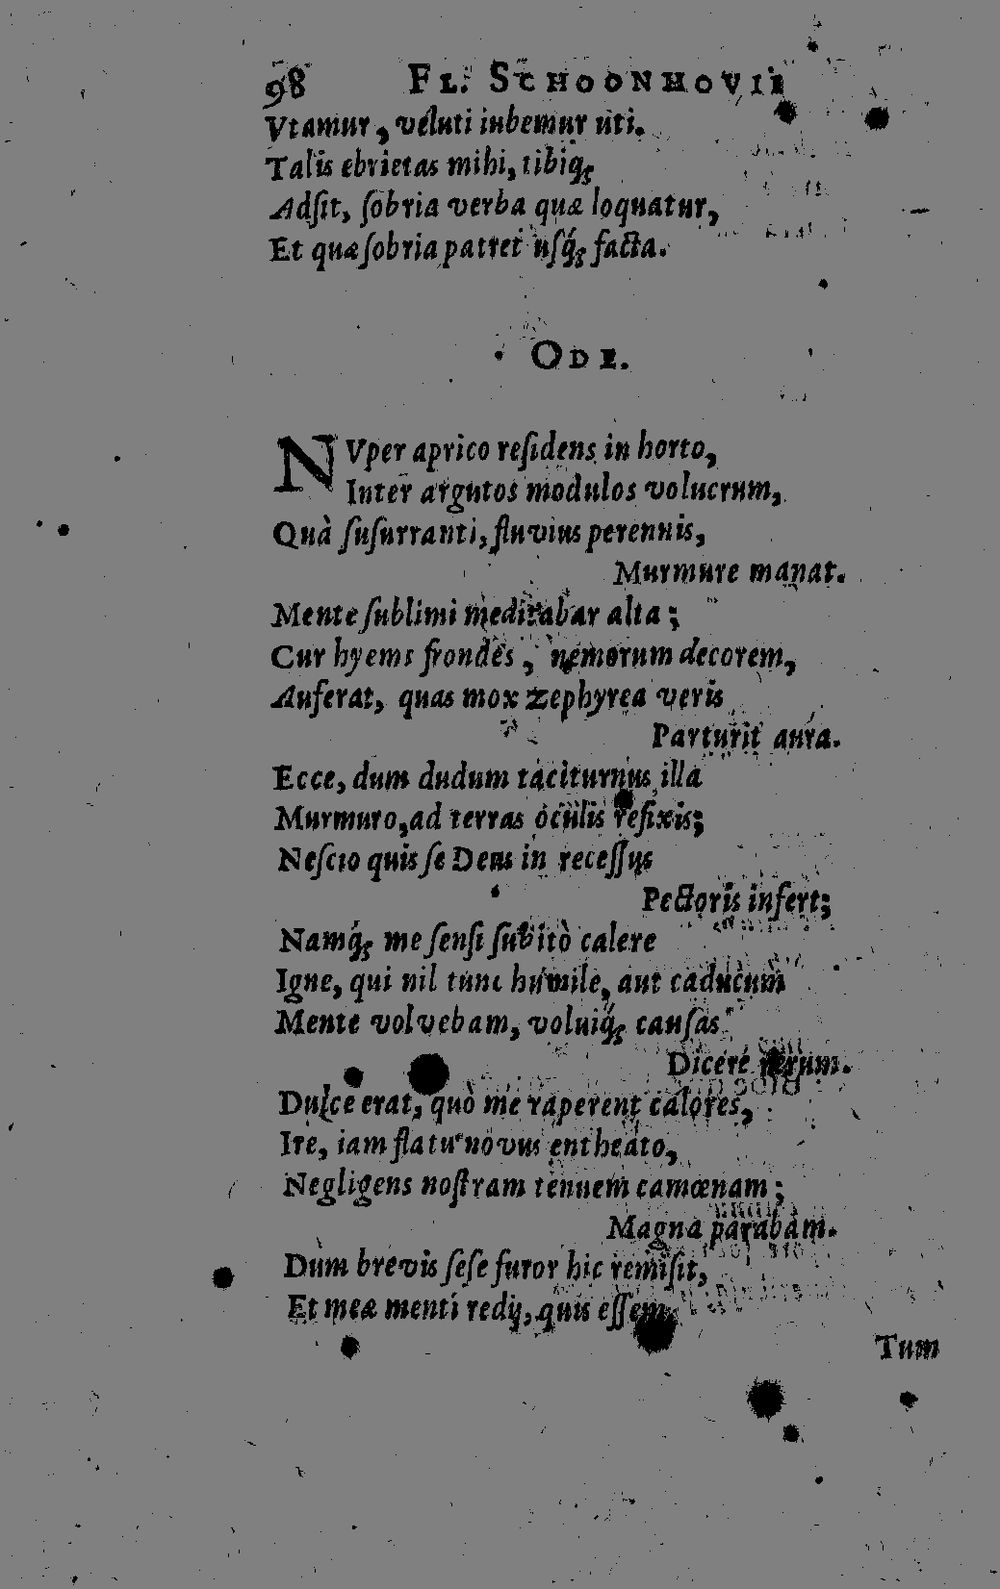 98 FL. SCHOONHOVII
Vtamur, veluti iubemur uti.
Talis ebrietas mihi, tibiq́ꝫ
Adſit, ſobria verba quæ loquatur,
Et quæ ſobria patret uſq́ꝫ facta.
ODE.
NVper aprico reſidens in horto,
Inter argutos modulos volucrum,
Quà ſuſurranti, fluvius perennis,
Murmure manat.
Mente ſublimi meditabar alta;
Cur hyems frondes, nemorum decorem,
Auferat, quas mox zephyrea veris
Parturit aura.
Ecce, dum dudum taciturnus illa
Murmuro, ad terras oculis refixis;
Neſcio quis ſe Deus in receſſus
Pectoris infert;
Namq́ꝫ me ſenſi ſubitò calere
Igne, qui nil tunc humile, aut caducum
Mente volvebam, voluiq́ꝫ cauſas
Dicere rerum.
Dulce erat, quò me raperent calores,
Ire, iam flatu novus entheato,
Negligens noſtram tenuem camœnam;
Magna parabam.
Dum brevis ſeſe furor hic remiſit,
Et meæ menti redij, quis eſſem,
Tum